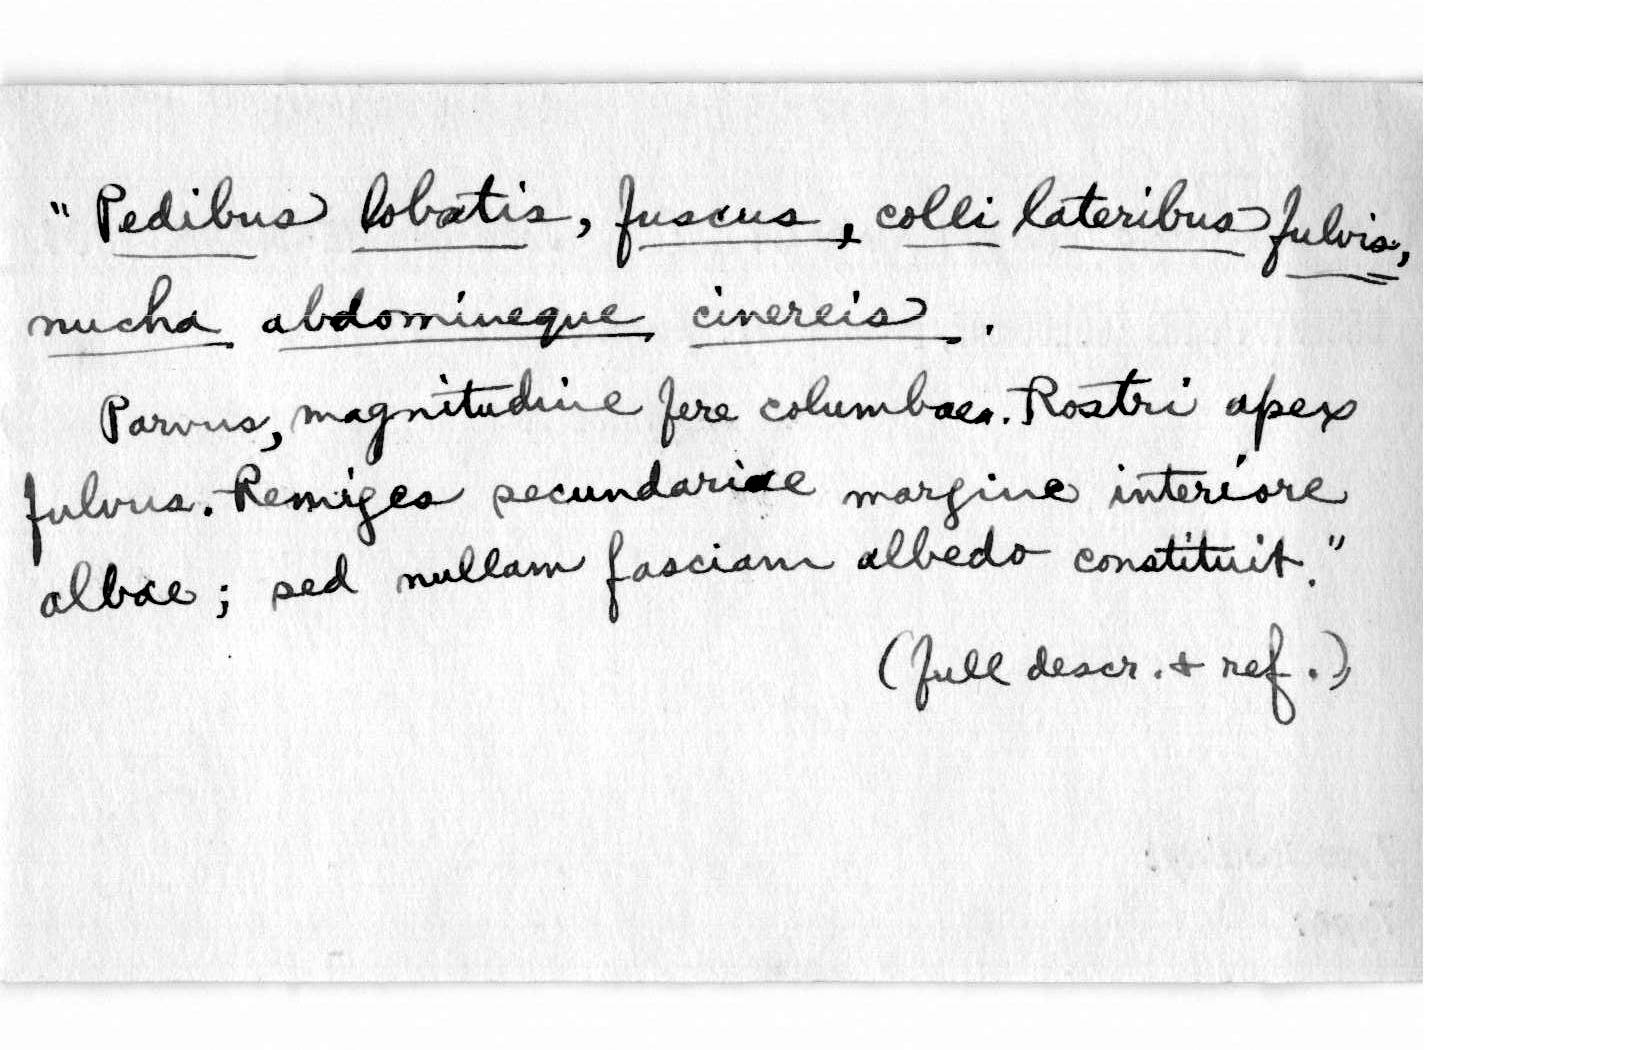 "Pedibus lobatis, fuscus, colli lateribus fulvis,
nucha abdomineque cinereis.
Parvus, magnitudine fere columbae. Rostri apex
fulvus. Remiges secundariae margine interiore
albae; sed nullam fasciam albedo constituit."
(full descr. & ref.)